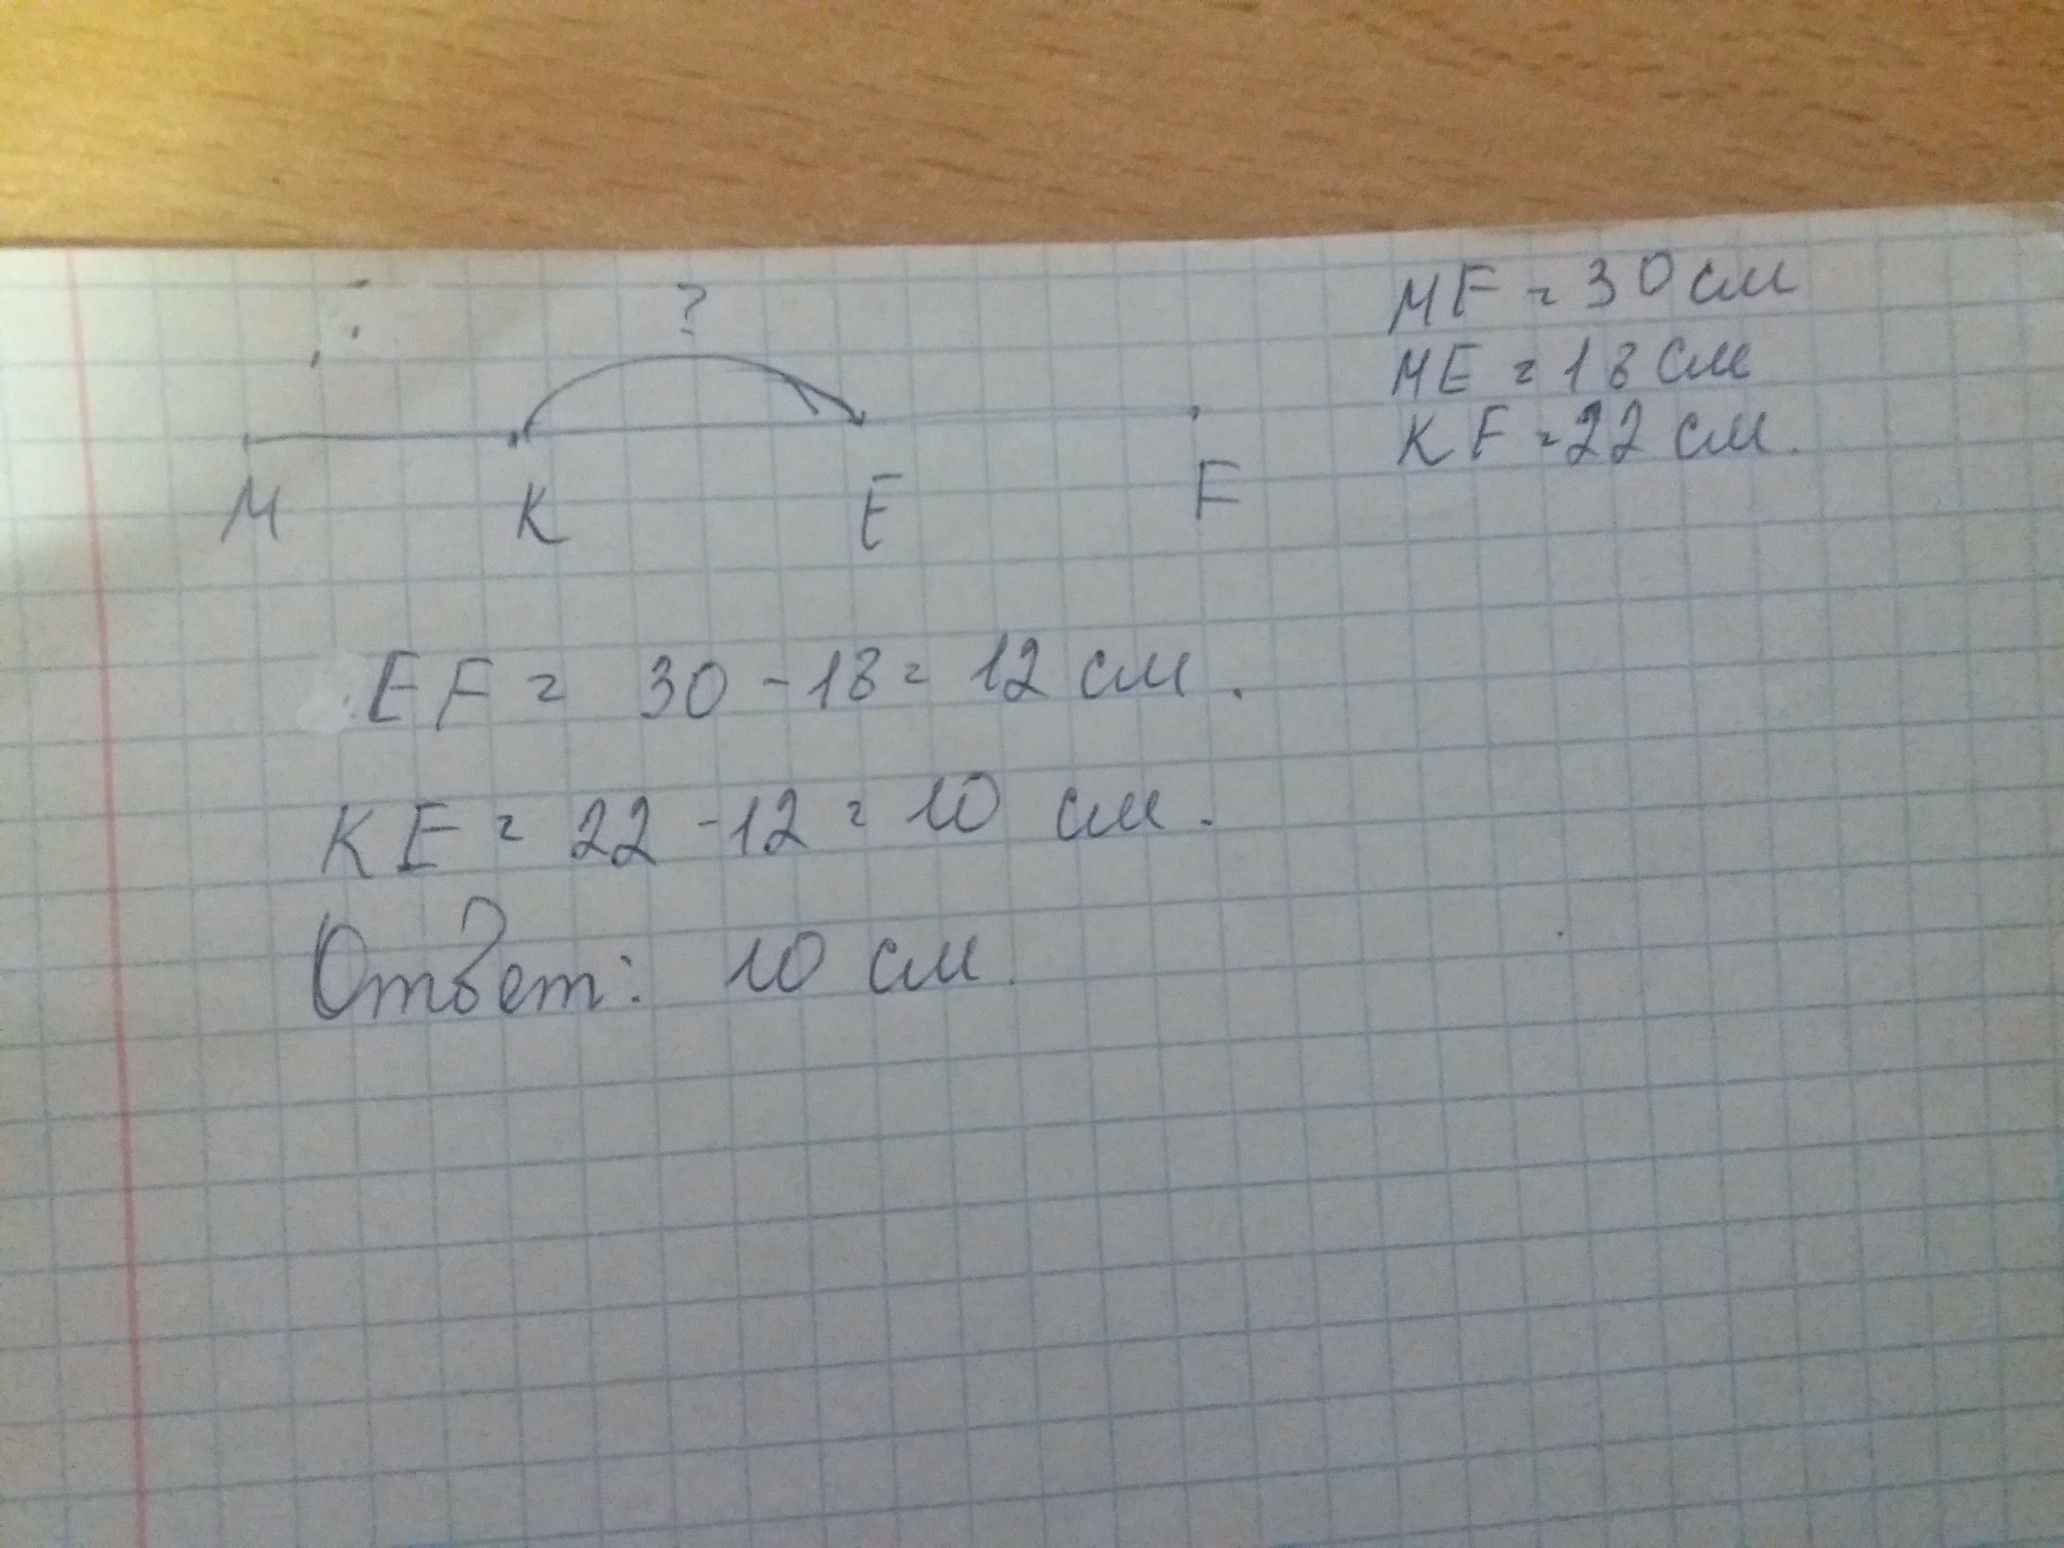 ?
M K E F
MF = 30 см
ME = 18 см
KF = 22 см.
EF = 30 - 18 = 12 см.
KE = 22 - 12 = 10 см.
Ответ: 10 см.